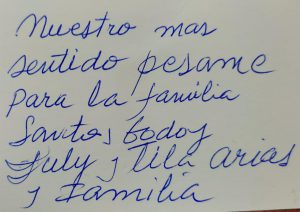 Nuestro mas
sentido pesame
Para la familia
Santos Godoy
July y lila arias
y Familia